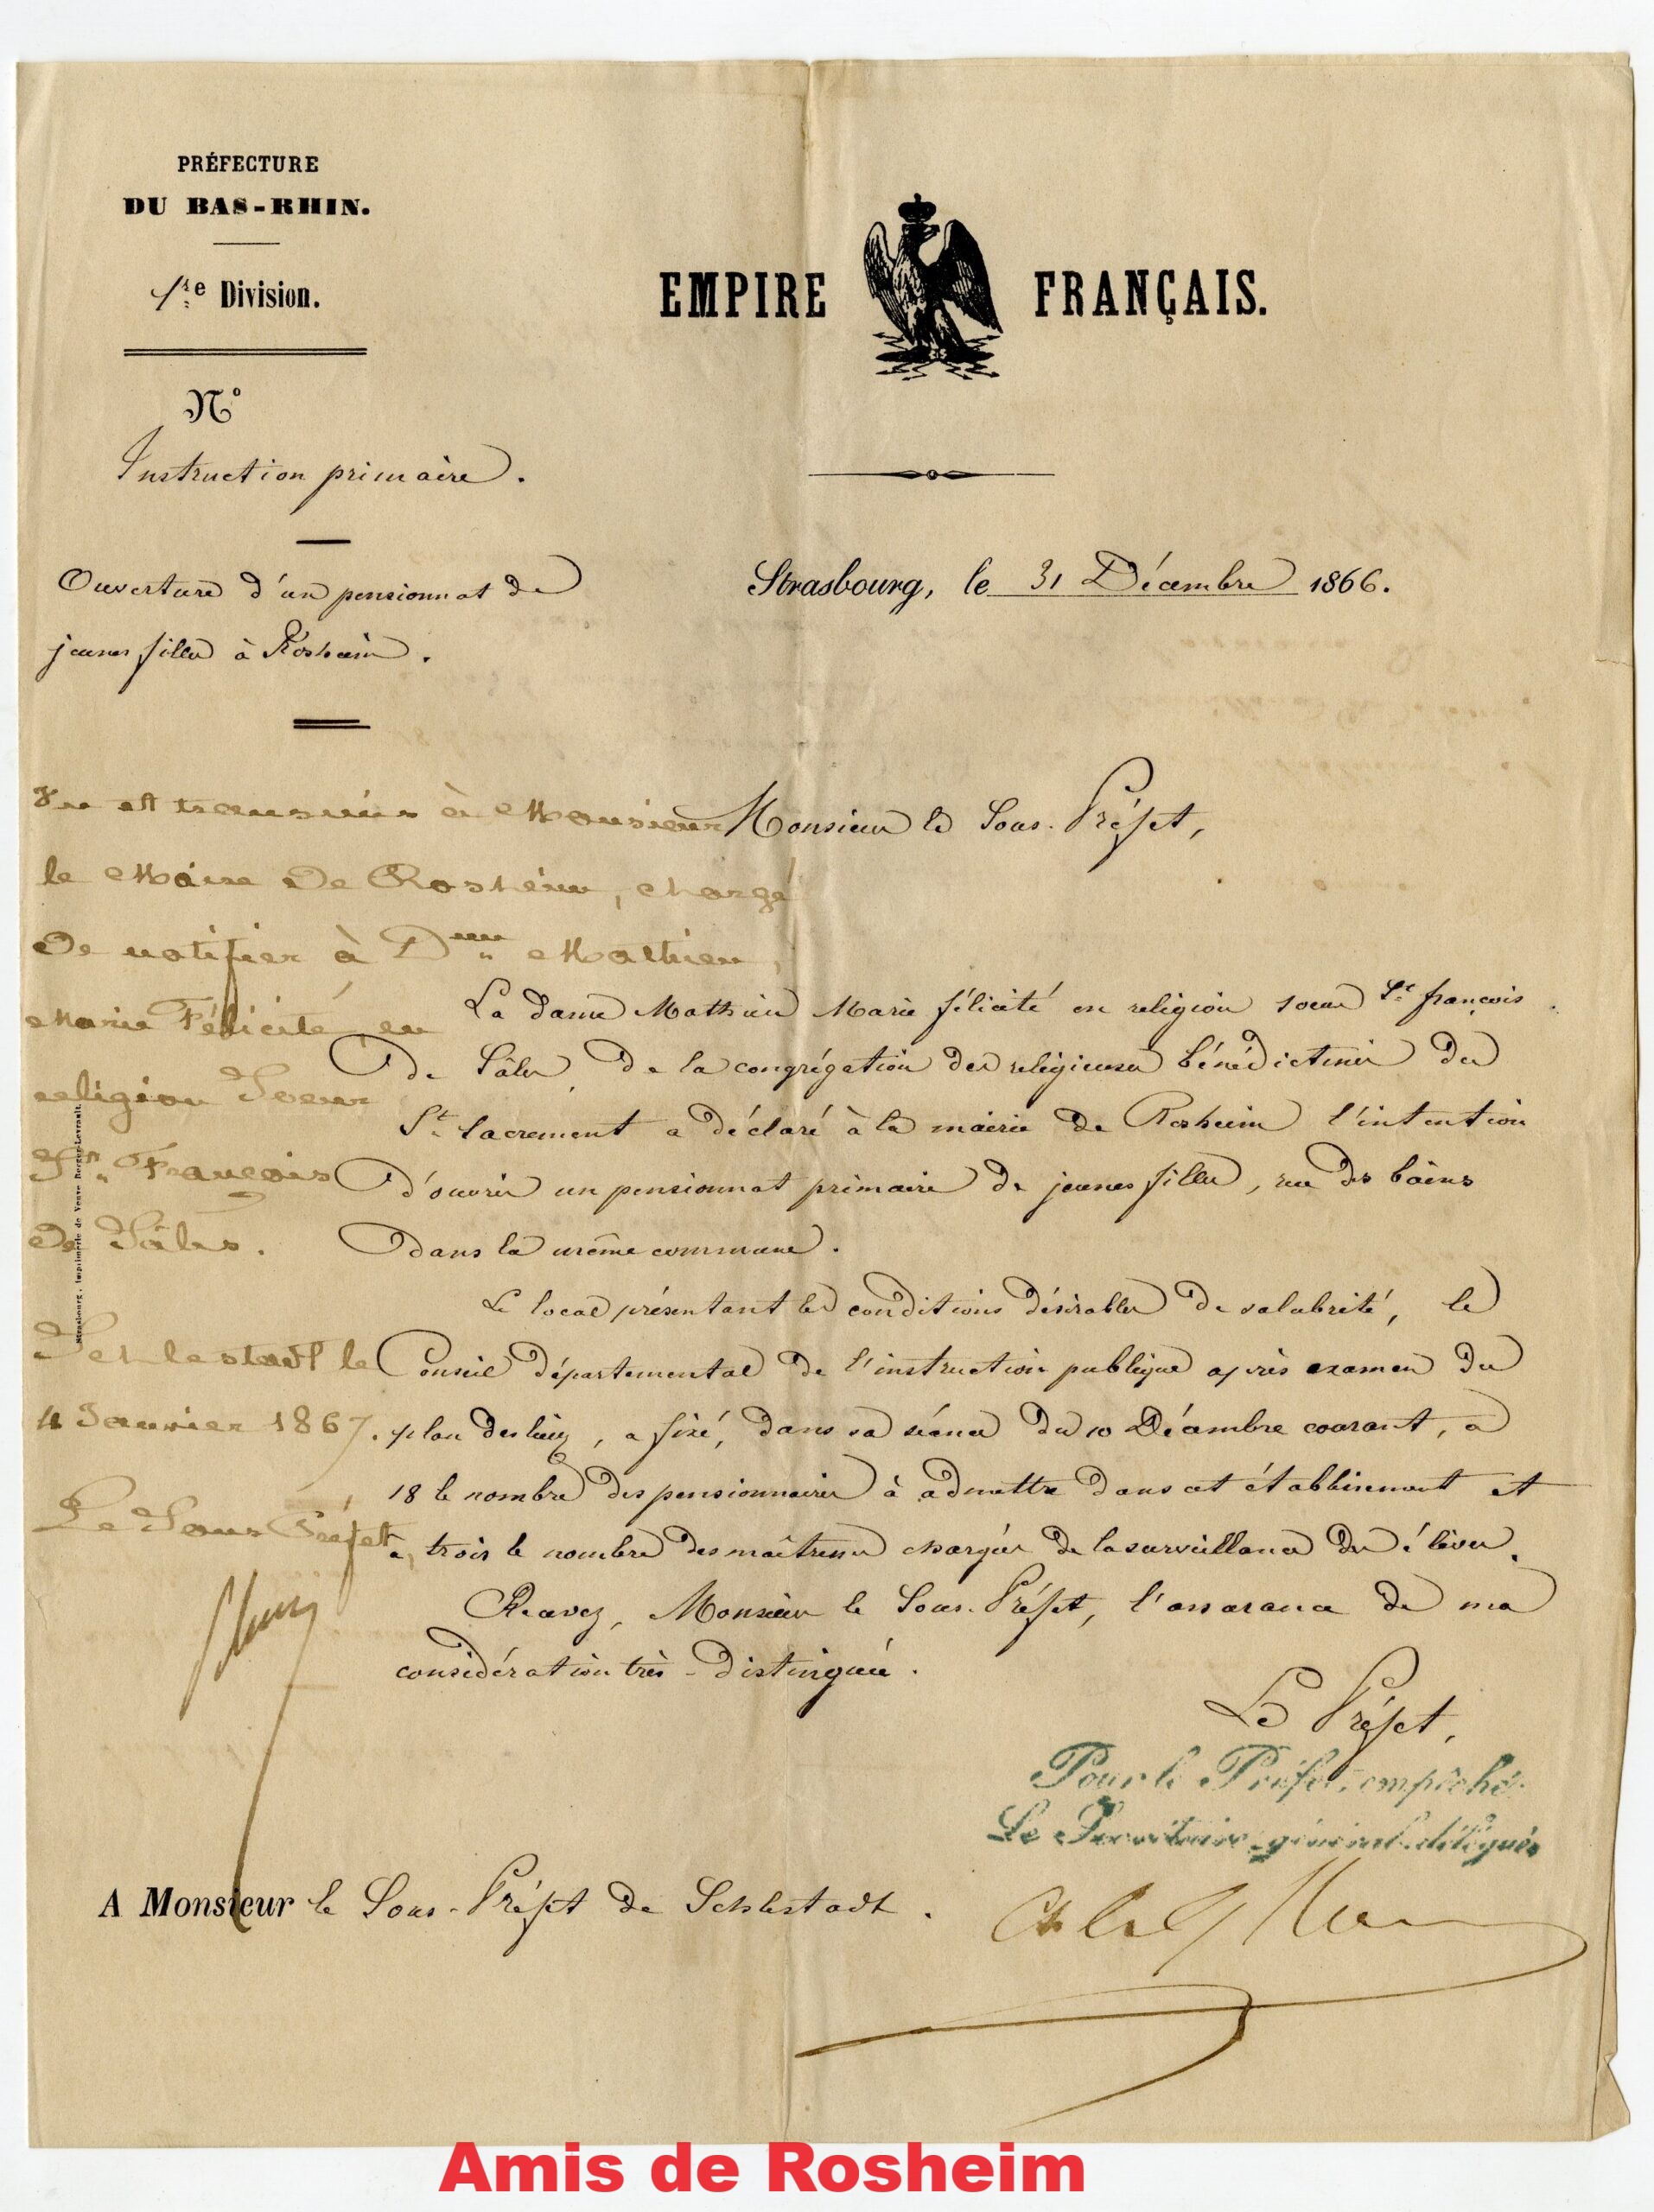 PRÉFECTURE
DU BAS-RHIN.
1re Division.
N°
Instruction primaire.
Ouverture d'un pensionnat de
jeunes filles à Rosheim.
EMPIRE FRANÇAIS.
Strasbourg, le 31 Décembre 1866.
Vu et transmis à Monsieur
le Maire de Rosheim, chargé
de notifier à Dme Mathieu,
Marie Félicité, en
religion Soeur
St François
de Sâles.
Schlestadt le
4 Janvier 1867.
Le Sous Préfet,
Strasbourg, imprimerie de Veuve Berger-Levrault.
Monsieur le Sous-Préfet,
La dame Mathieu Marie félicité en religion soeur St françois
de Sâles, de la congrégation des religieuses bénédictines du
St sacrement a déclaré à la mairie de Rosheim l'intention
d'ouvrir un pensionnat primaire de jeunes filles, rue des bains
dans la même commune.
Le local présentant les conditions désirables de salubrité, le
Conseil départemental de l'instruction publique après examen du
plan des lieux, a fixé, dans sa séance du 10 Décembre courant, à
18 le nombre des pensionnaires à admettre dans cet établissement et
à trois le nombre des maîtresses chargées de la surveillance des élèves.
Recevez, Monsieur le Sous-Préfet, l'assurance de ma
considération très-distinguée.
Le Préfet,
Pour le Préfet empêché
Le Secrétaire-général délégué
A Monsieur le Sous-Préfet de Schlestadt.
Amis de Rosheim